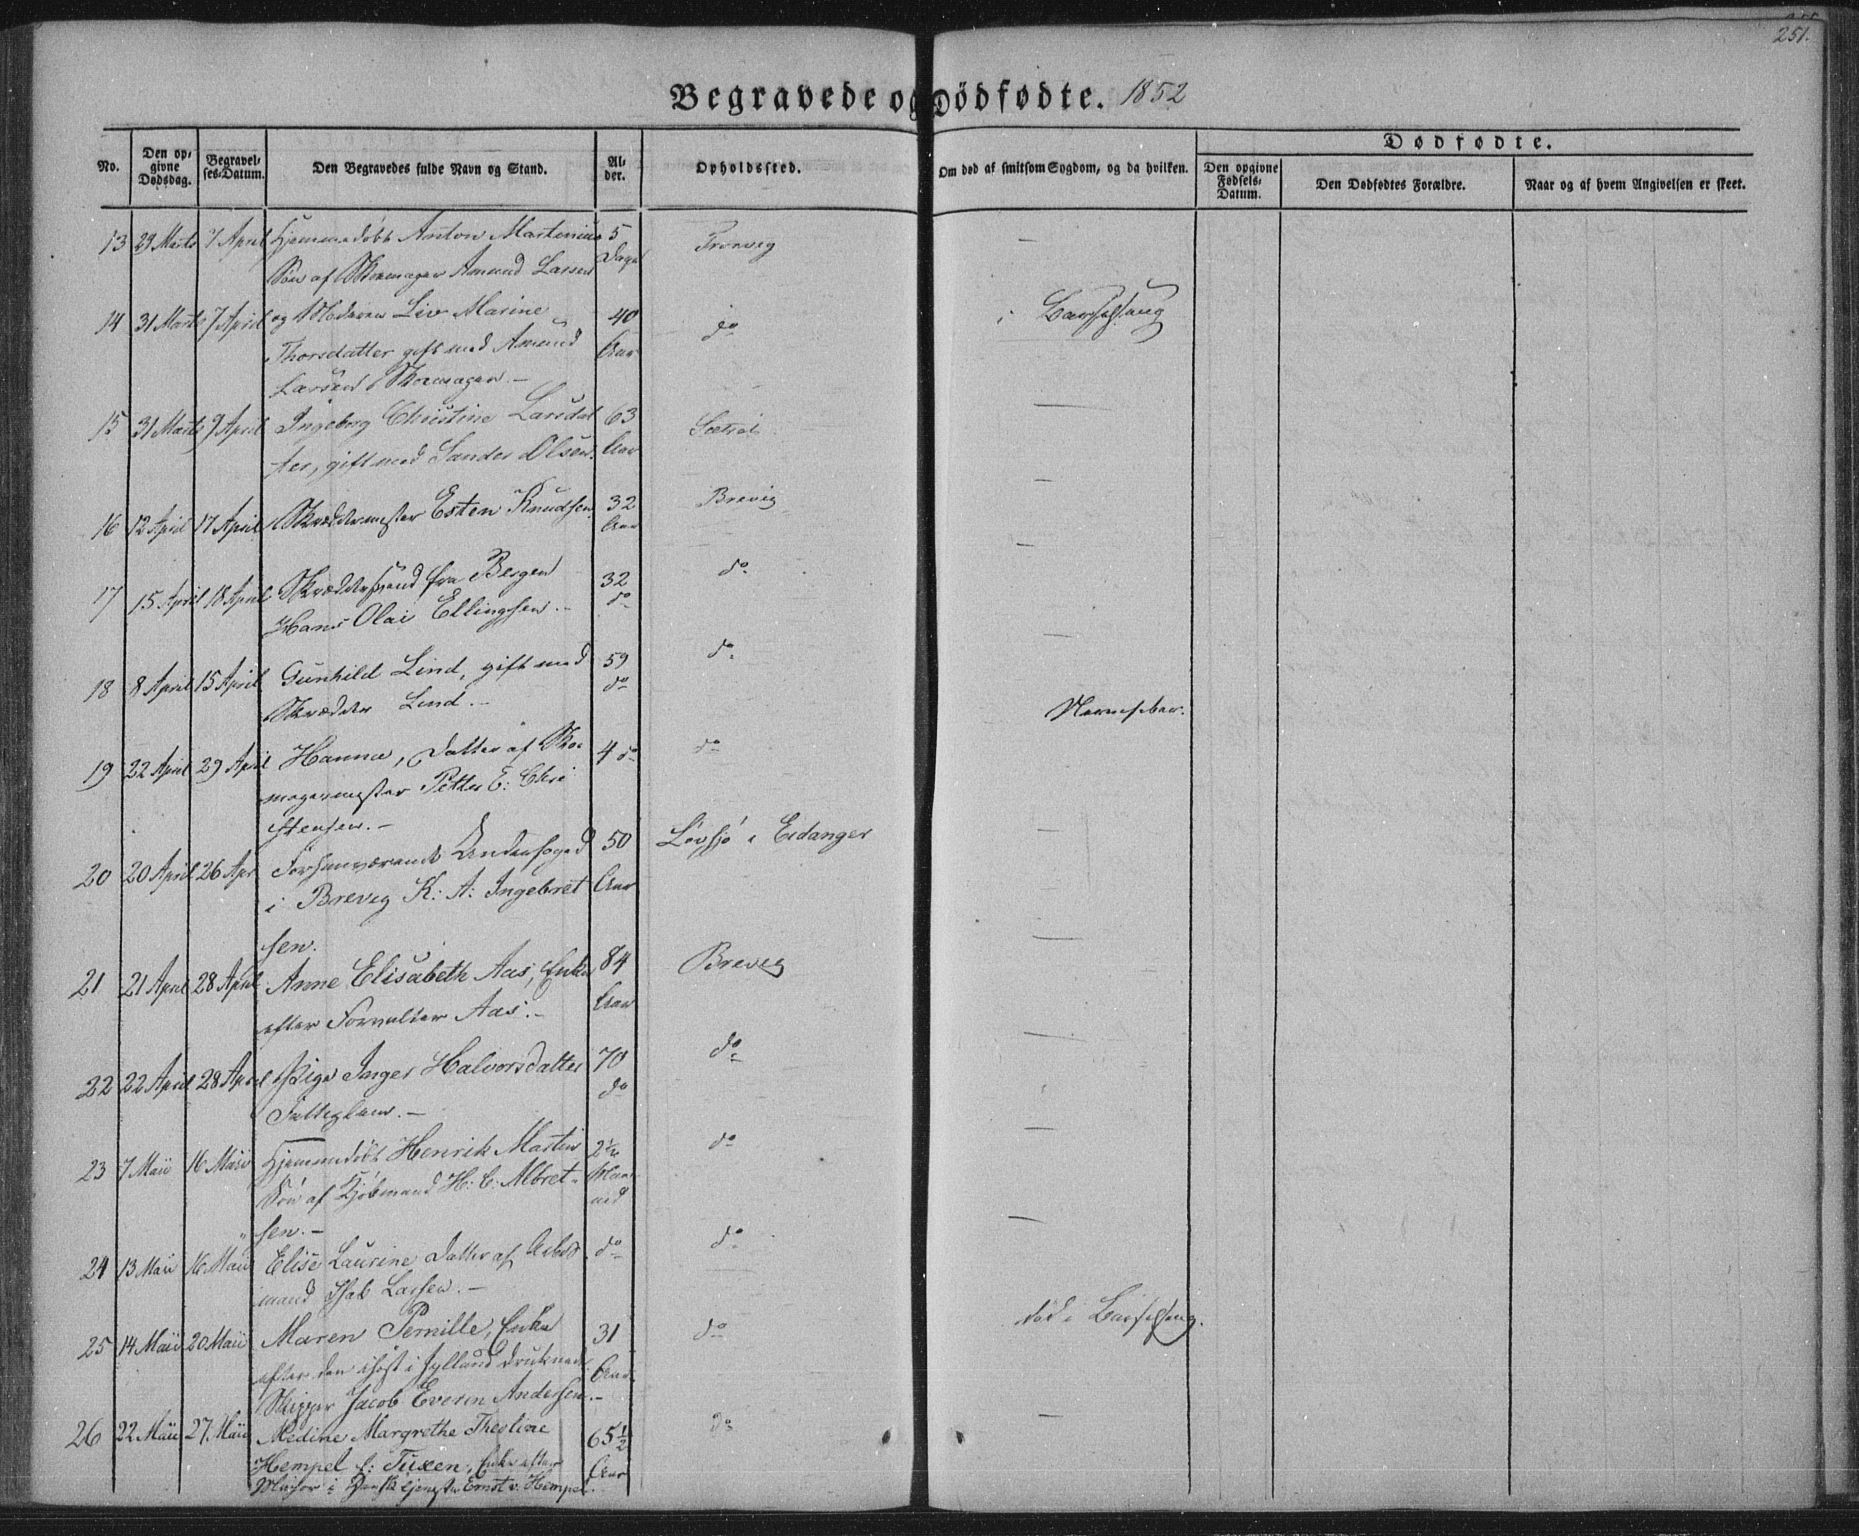 251.
Begravede og Dødfødte. 1852
No.
Den opgivne Dødsdag.
Begravelses-Datum.
Den Begravedes fulde Navn og Stand.
Alder.
Opholdssted.
Om død af smitsom Sygdom, og da hvilken.
Dødfødte.
Den opgivne Fødsels-Datum.
Den Dødfødtes Forældre.
Naar og af hvem Angivelsen er skeet.
13 29 Marts 7 April Hjemmedøbt Anton Martinius 5 —
Søn af Skomager Amund Larsen Dage
14 31 Marts 7 April og Moderen Liv Marine 40 do i Barselseng
Thorsdatter gift med Amund Aar
Larsen Skomager. —
15 31 Marts 9 April Ingeborg Christine Larsdat 63 —
ter, gift med Sander Olsen. Aar
16 12 April 17 April Skræddermester Esten Knudsen 32 Brevig —
Aar
17 15 April 18 April Skræddersvend fra Bergen 32 do —
Hans Olai Ellingsen. — do
18 8 April 15 April Gunhild Lind, gift med 59 do —
Skrædder Lind. — do
19 22 April 29 April Hanna, Datter af Sko 4 do do
magermester Petter E: Chri
stensen. —
20 20 April 26 Apr Forhenværende 50 i Eidanger —
i Brevig K: A: Ingebret Aar
sen.
21 21 April 28 April Anne Elisabeth Aas, Enke 84 Brevig —
efter Forvalter Aas. — Aar
22 22 April 28 April Pige Inger Halvorsdatter 70 do —
Fattiglem. — do
23 7 Maii 16 Maii Hjemmedøbt Henrik Martin 2½ do —
Søn af Kjøbmand H: C: Albret- Maa
sen. — ned
24 13 Maii 16 Maii Elise Laurine Datter af Arbeids do do —
mand Isak Larsen. —
25 14 Maii 20 Maii Maren Pernille, Enke 31 do død i Barselseng.
efter den i høst i Jylland druknede Aar
Skipper Jacob Everin Andersen. —
26 22 Maii 27. Maii Medine Margrethe Theoline 65½ do —
Hempel f: Tuxen, Enke efter Aar
Major i Dansk tjeneste Ernst v. Hempel.